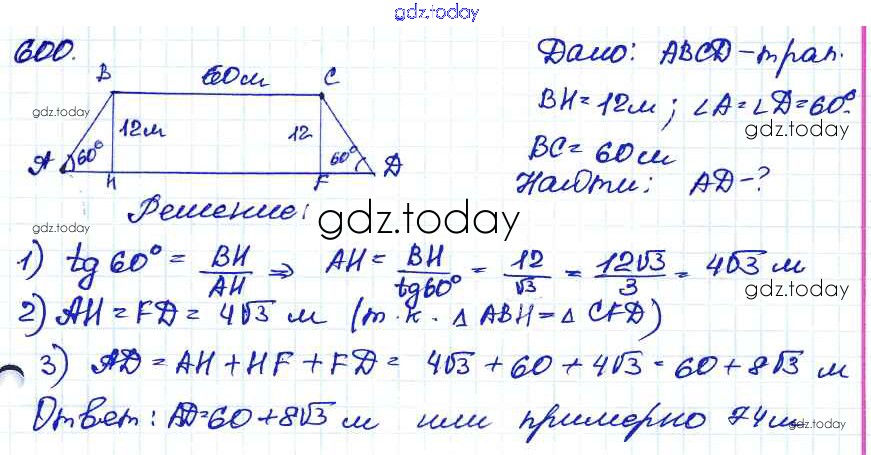 gdz.today
600.
B 60м C
12м 12
A 60° 60° D
H F
Дано: ABCD-трап.
BH=12м; ∠A=∠D=60°.
BC=60м
Найти: AD-?
gdz.today
gdz.today
gdz.today
Решение:
gdz.today
1) tg 60° = BH/AH ⇒ AH = BH/tg60° = 12/√3 = 12√3/3 = 4√3 м
gdz.today
2) AH=FD=4√3 м (т.к. △ABH=△CFD)
3) AD=AH+HF+FD= 4√3+60+4√3=60+8√3 м
Ответ: AD=60+8√3 м или примерно 74м
gdz.today